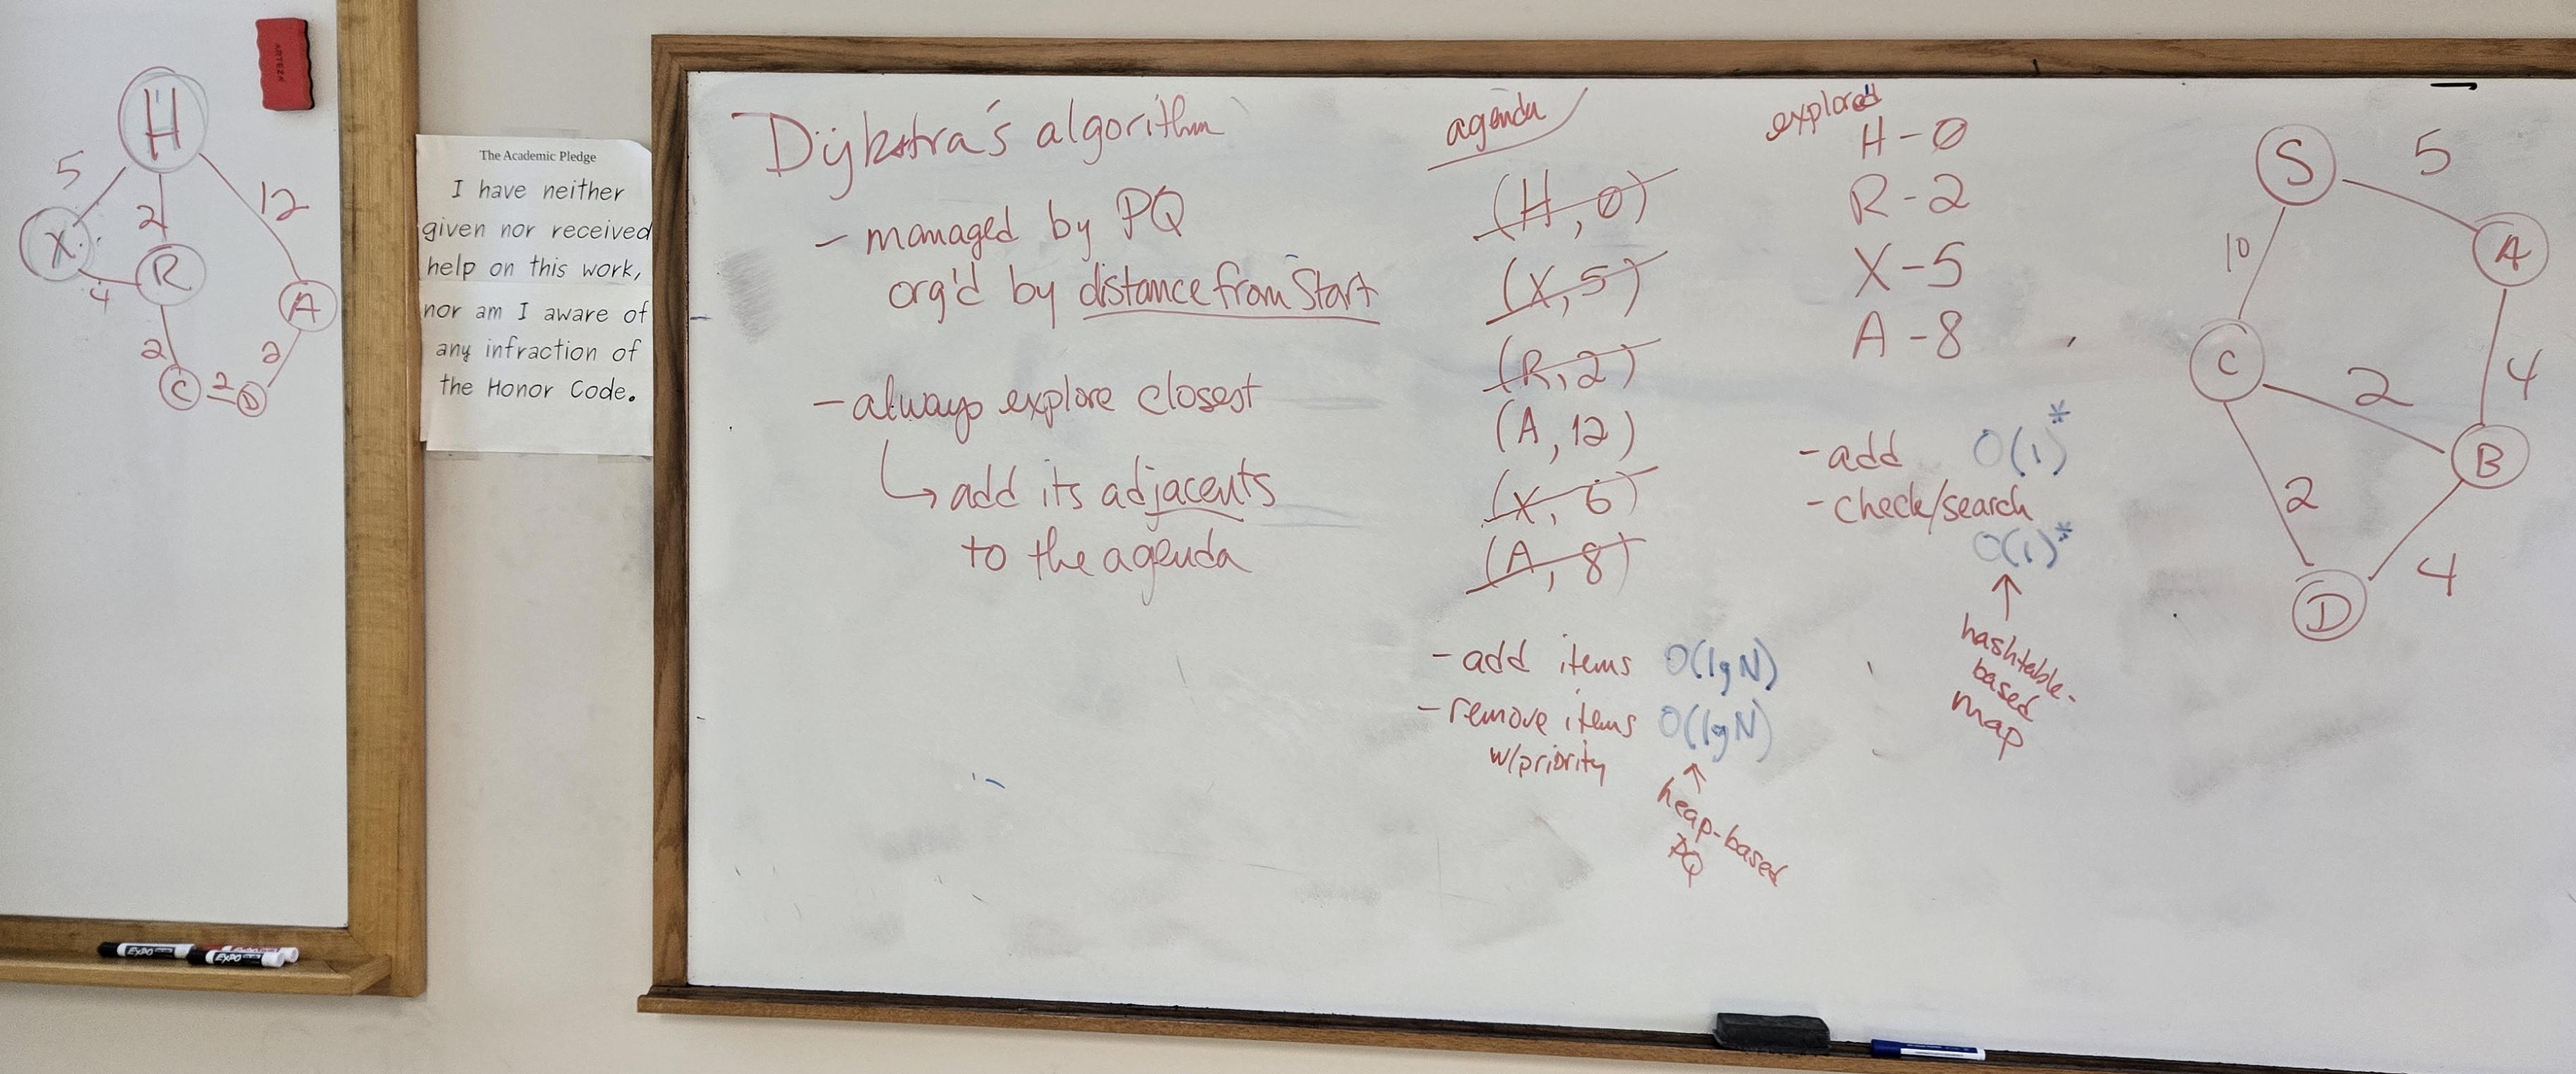 H
5
2
12
X
R
4
A
2
2
C
2
D
The Academic Pledge
I have neither
given nor received
help on this work,
nor am I aware of
any infraction of
the Honor Code.
EXPO
EXPO
Dijkstra's algorithm
- managed by PQ
org'd by distance from Start
- always explore closest
↳ add its adjacents
to the agenda
agenda
(H, 0)
(X, 5)
(R, 2)
(A, 12)
(X, 6)
(A, 8)
- add items O(lgN)
- remove items O(lgN)
w/priority
↑
heap-based
PQ
explored
H - 0
R - 2
X - 5
A - 8
- add O(1)*
- check/search
O(1)*
↑
hashtable-
based
map
S
5
10
A
C
2
4
B
2
4
D